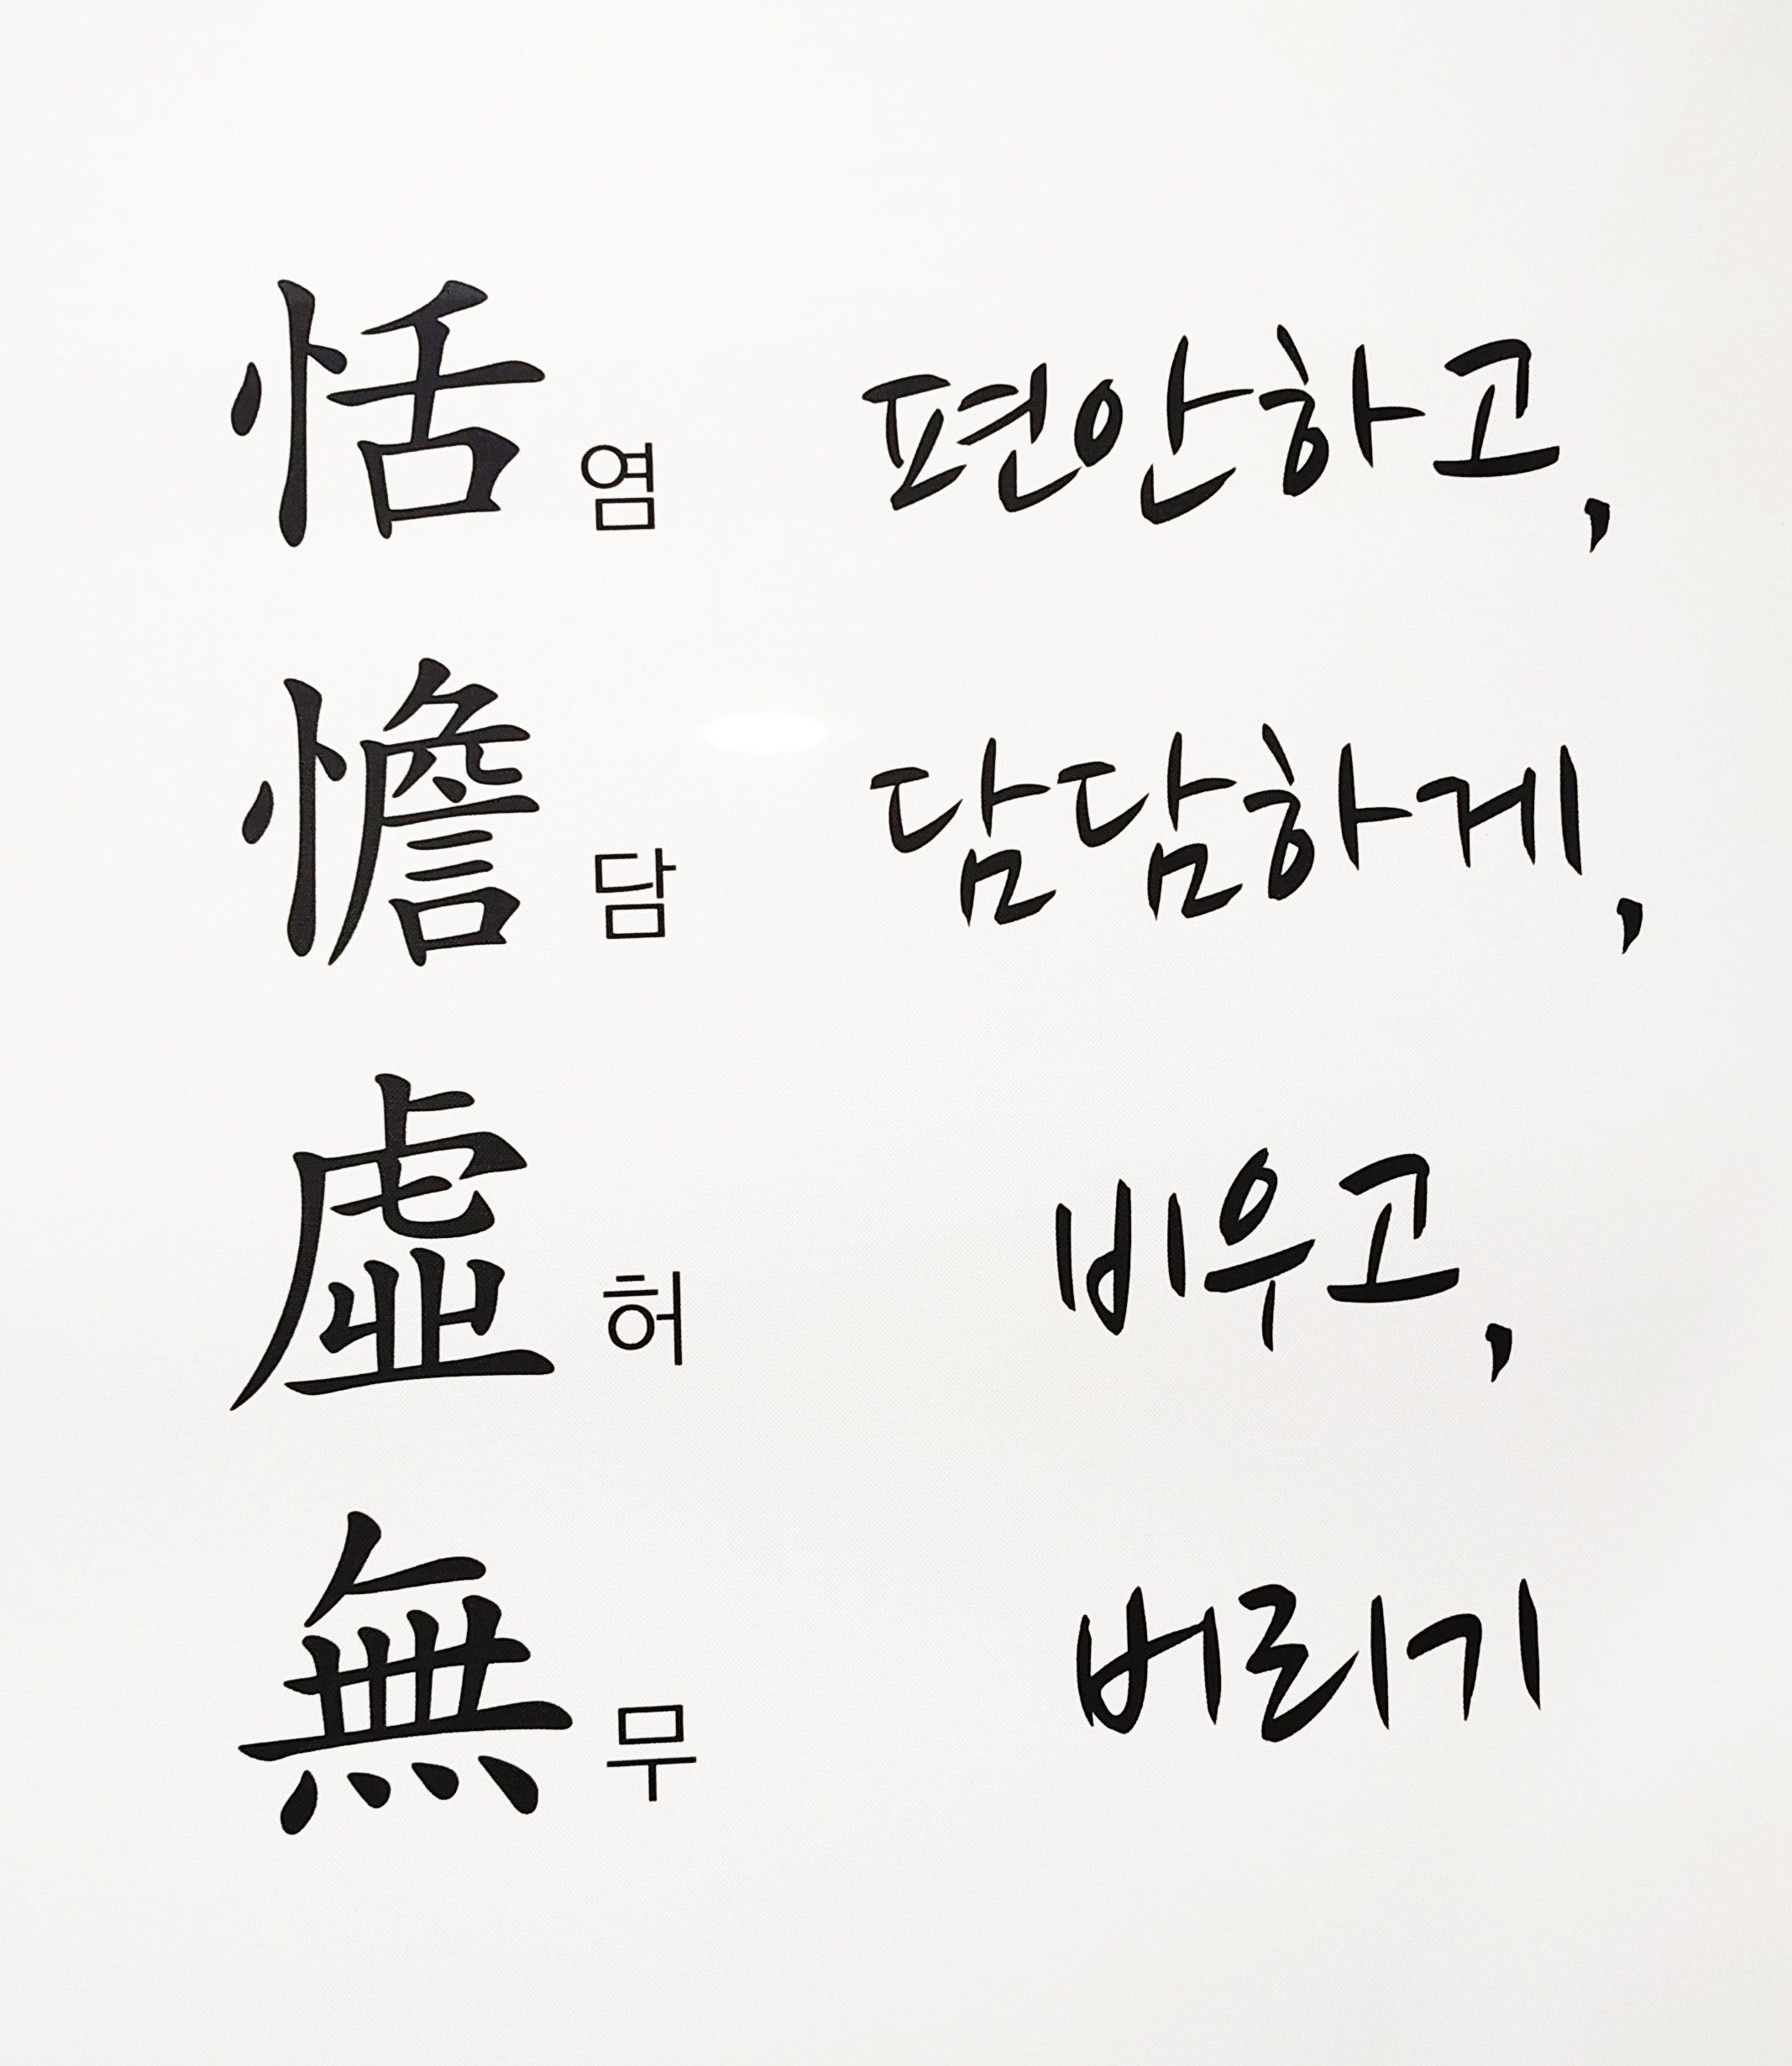 恬염 편안하고,
憺담 담담하게,
虛허 비우고,
無무 버리기